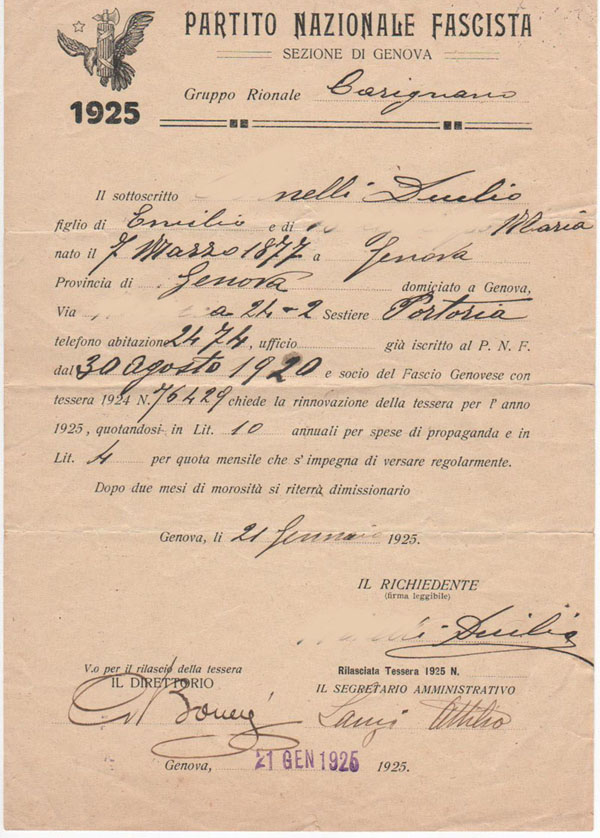 PARTITO NAZIONALE FASCISTA
SEZIONE DI GENOVA
Gruppo Rionale Carignano
1925
Il sottoscritto nelli Duilio
figlio di Emilio e di Maria
nato il 7 Marzo 1877 a Genova
Provincia di Genova domiciato a Genova,
Via a 24-2 Sestiere Portoria
telefono abitazione 2474, ufficio già iscritto al P. N. F.
dal 30 agosto 1920 e socio del Fascio Genovese con
tessera 1924 N. 76429 chiede la rinnovazione della tessera per l'anno
1925, quotandosi in Lit. 10 annuali per spese di propaganda e in
Lit. 4 per quota mensile che s'impegna di versare regolarmente.
Dopo due mesi di morosità si riterrà dimissionario
Genova, li 21 Gennaio 1925.
IL RICHIEDENTE
(firma leggibile)
Duilio
V.o per il rilascio della tessera
IL DIRETTORIO
Rilasciata Tessera 1925 N.
IL SEGRETARIO AMMINISTRATIVO
Attilio
Genova, 21 GEN 1925 1925.